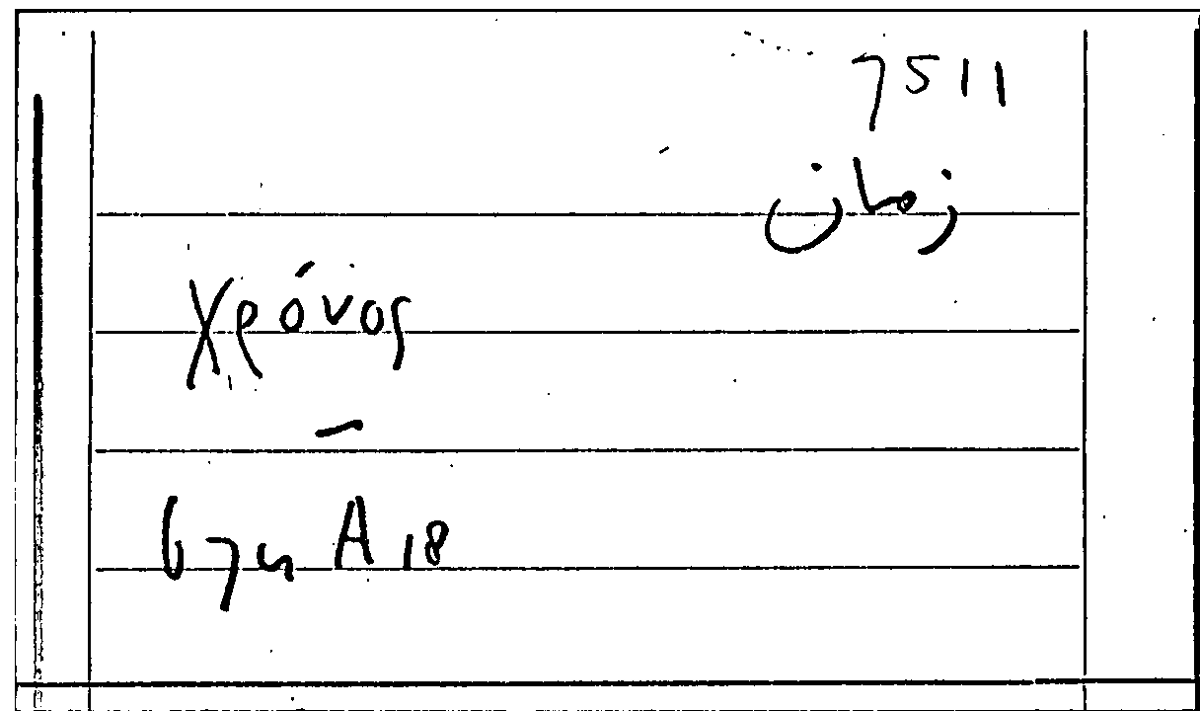 7511
زمان
χρόνος
–
67a A 18